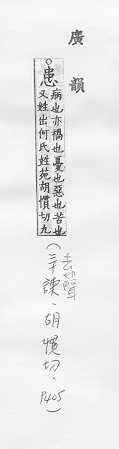 廣韻
患
病也亦禍也憂也惡也苦也
又姓出何氏姓苑胡慣切九
(去聲
三十諫.胡慣切.P405)